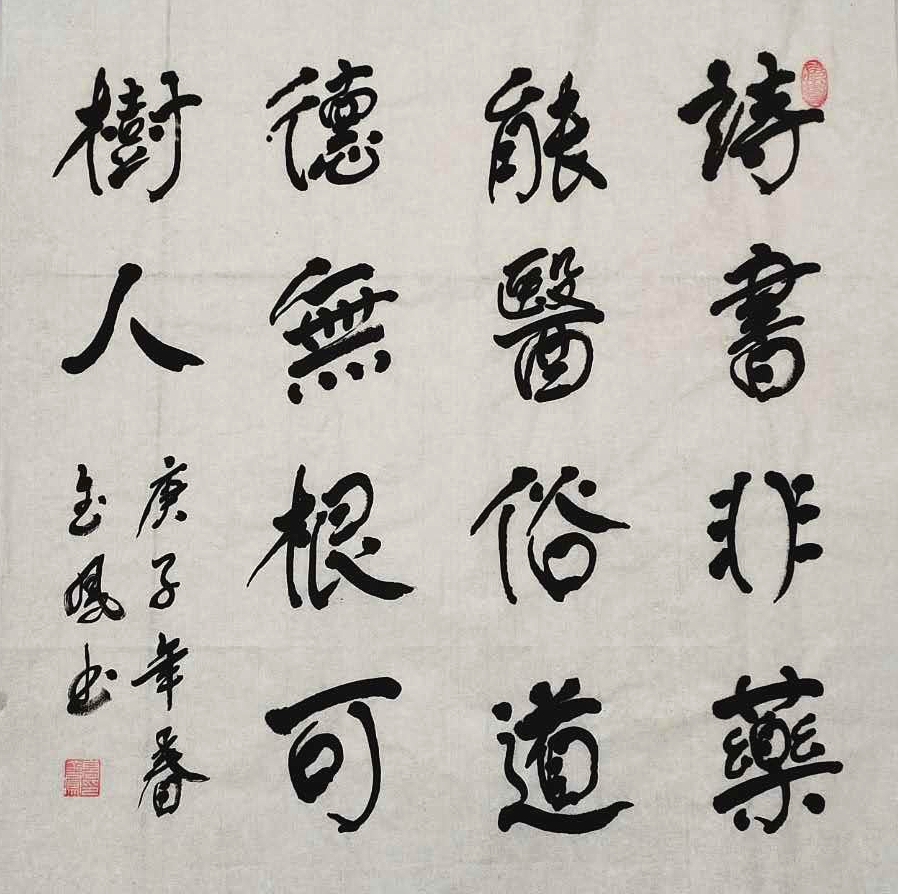 詩書非藥
能醫俗道
德無根可
樹人
庚子年春
玉鳳书